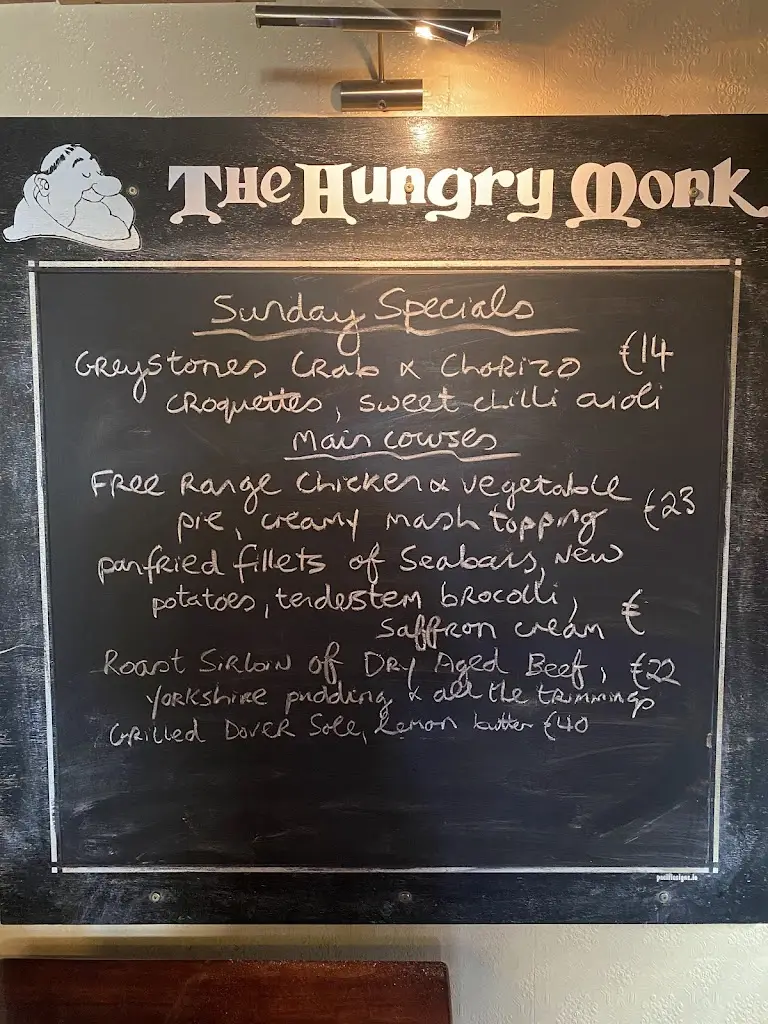 The Hungry Monk
Sunday Specials
Greystones Crab & Chorizo €14
croquettes, sweet chilli aioli
Main courses
Free Range Chicken & vegetable
pie, creamy mash topping €23
panfried fillets of Seabass, New
potatoes, tenderstem brocolli,
Saffron cream €
Roast Sirloin of Dry Aged Beef, €22
Yorkshire pudding & all the trimmings
Grilled Dover Sole, lemon butter €40
pacificsigns.ie